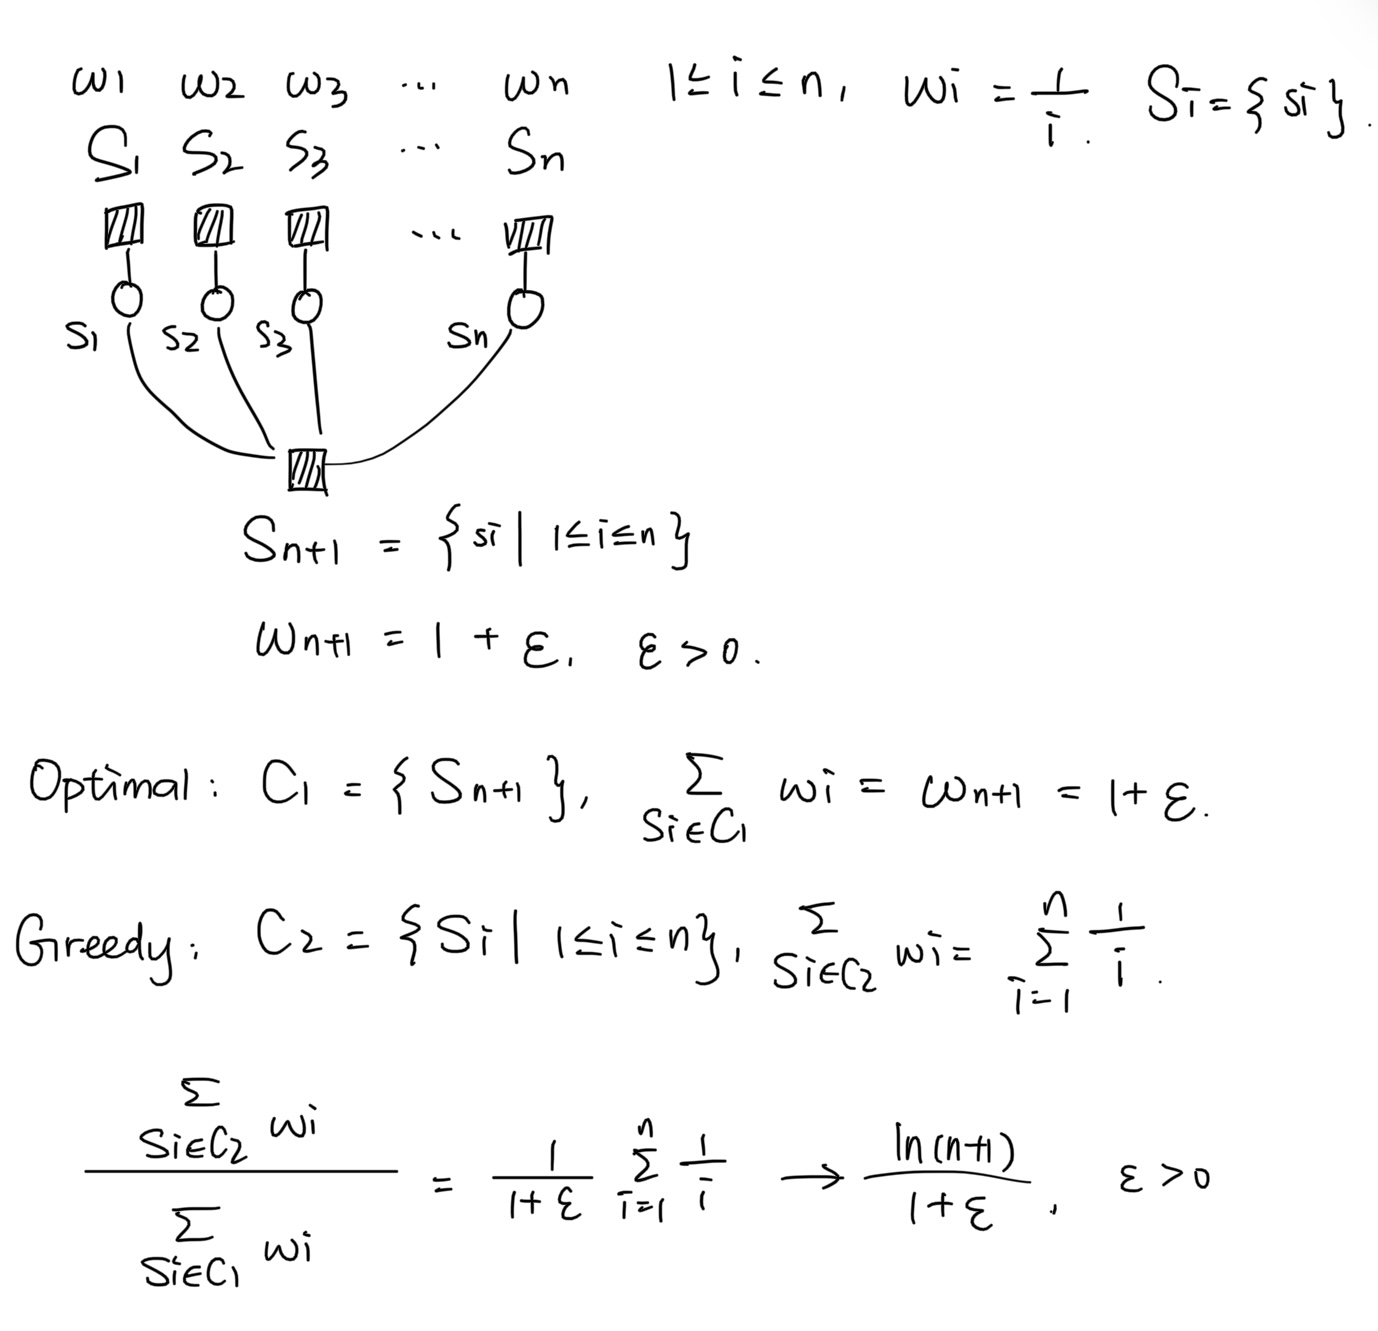 w1 w2 w3 ... wn 1≤i≤n, wi = 1/i. Si={si}.
S1 S2 S3 ... Sn
...
s1 s2 s3 sn
Sn+1 = {si | 1≤i≤n}
wn+1 = 1 + ε, ε>0.
Optimal: C1 = {Sn+1}, Σ_{Si∈C1} wi = wn+1 = 1+ε.
Greedy: C2 = {Si | 1≤i≤n}, Σ_{Si∈C2} wi = Σ_{i=1}^{n} 1/i.
Σ_{Si∈C2} wi / Σ_{Si∈C1} wi = 1/(1+ε) Σ_{i=1}^{n} 1/i → ln(n+1)/(1+ε), ε>0